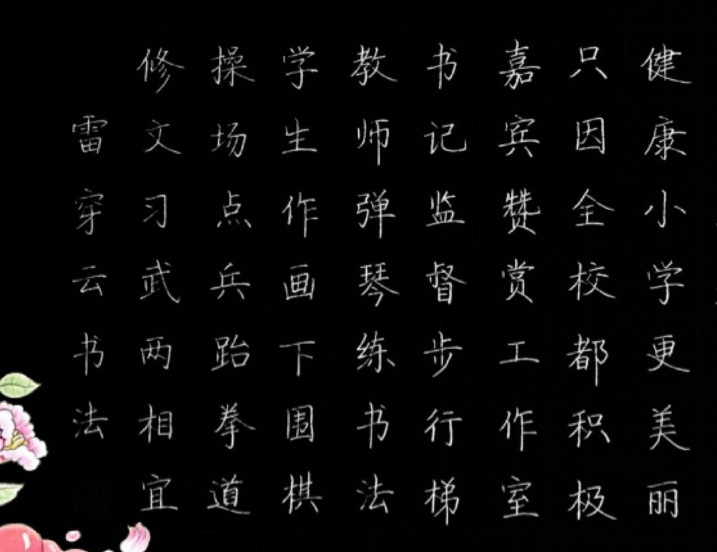 健康小学更美丽
只因全校都积极
嘉宾赞赏工作室
书记监督步行梯
教师弹琴练书法
学生作画下围棋
操场点兵跆拳道
修文习武两相宜
雷穿云书法